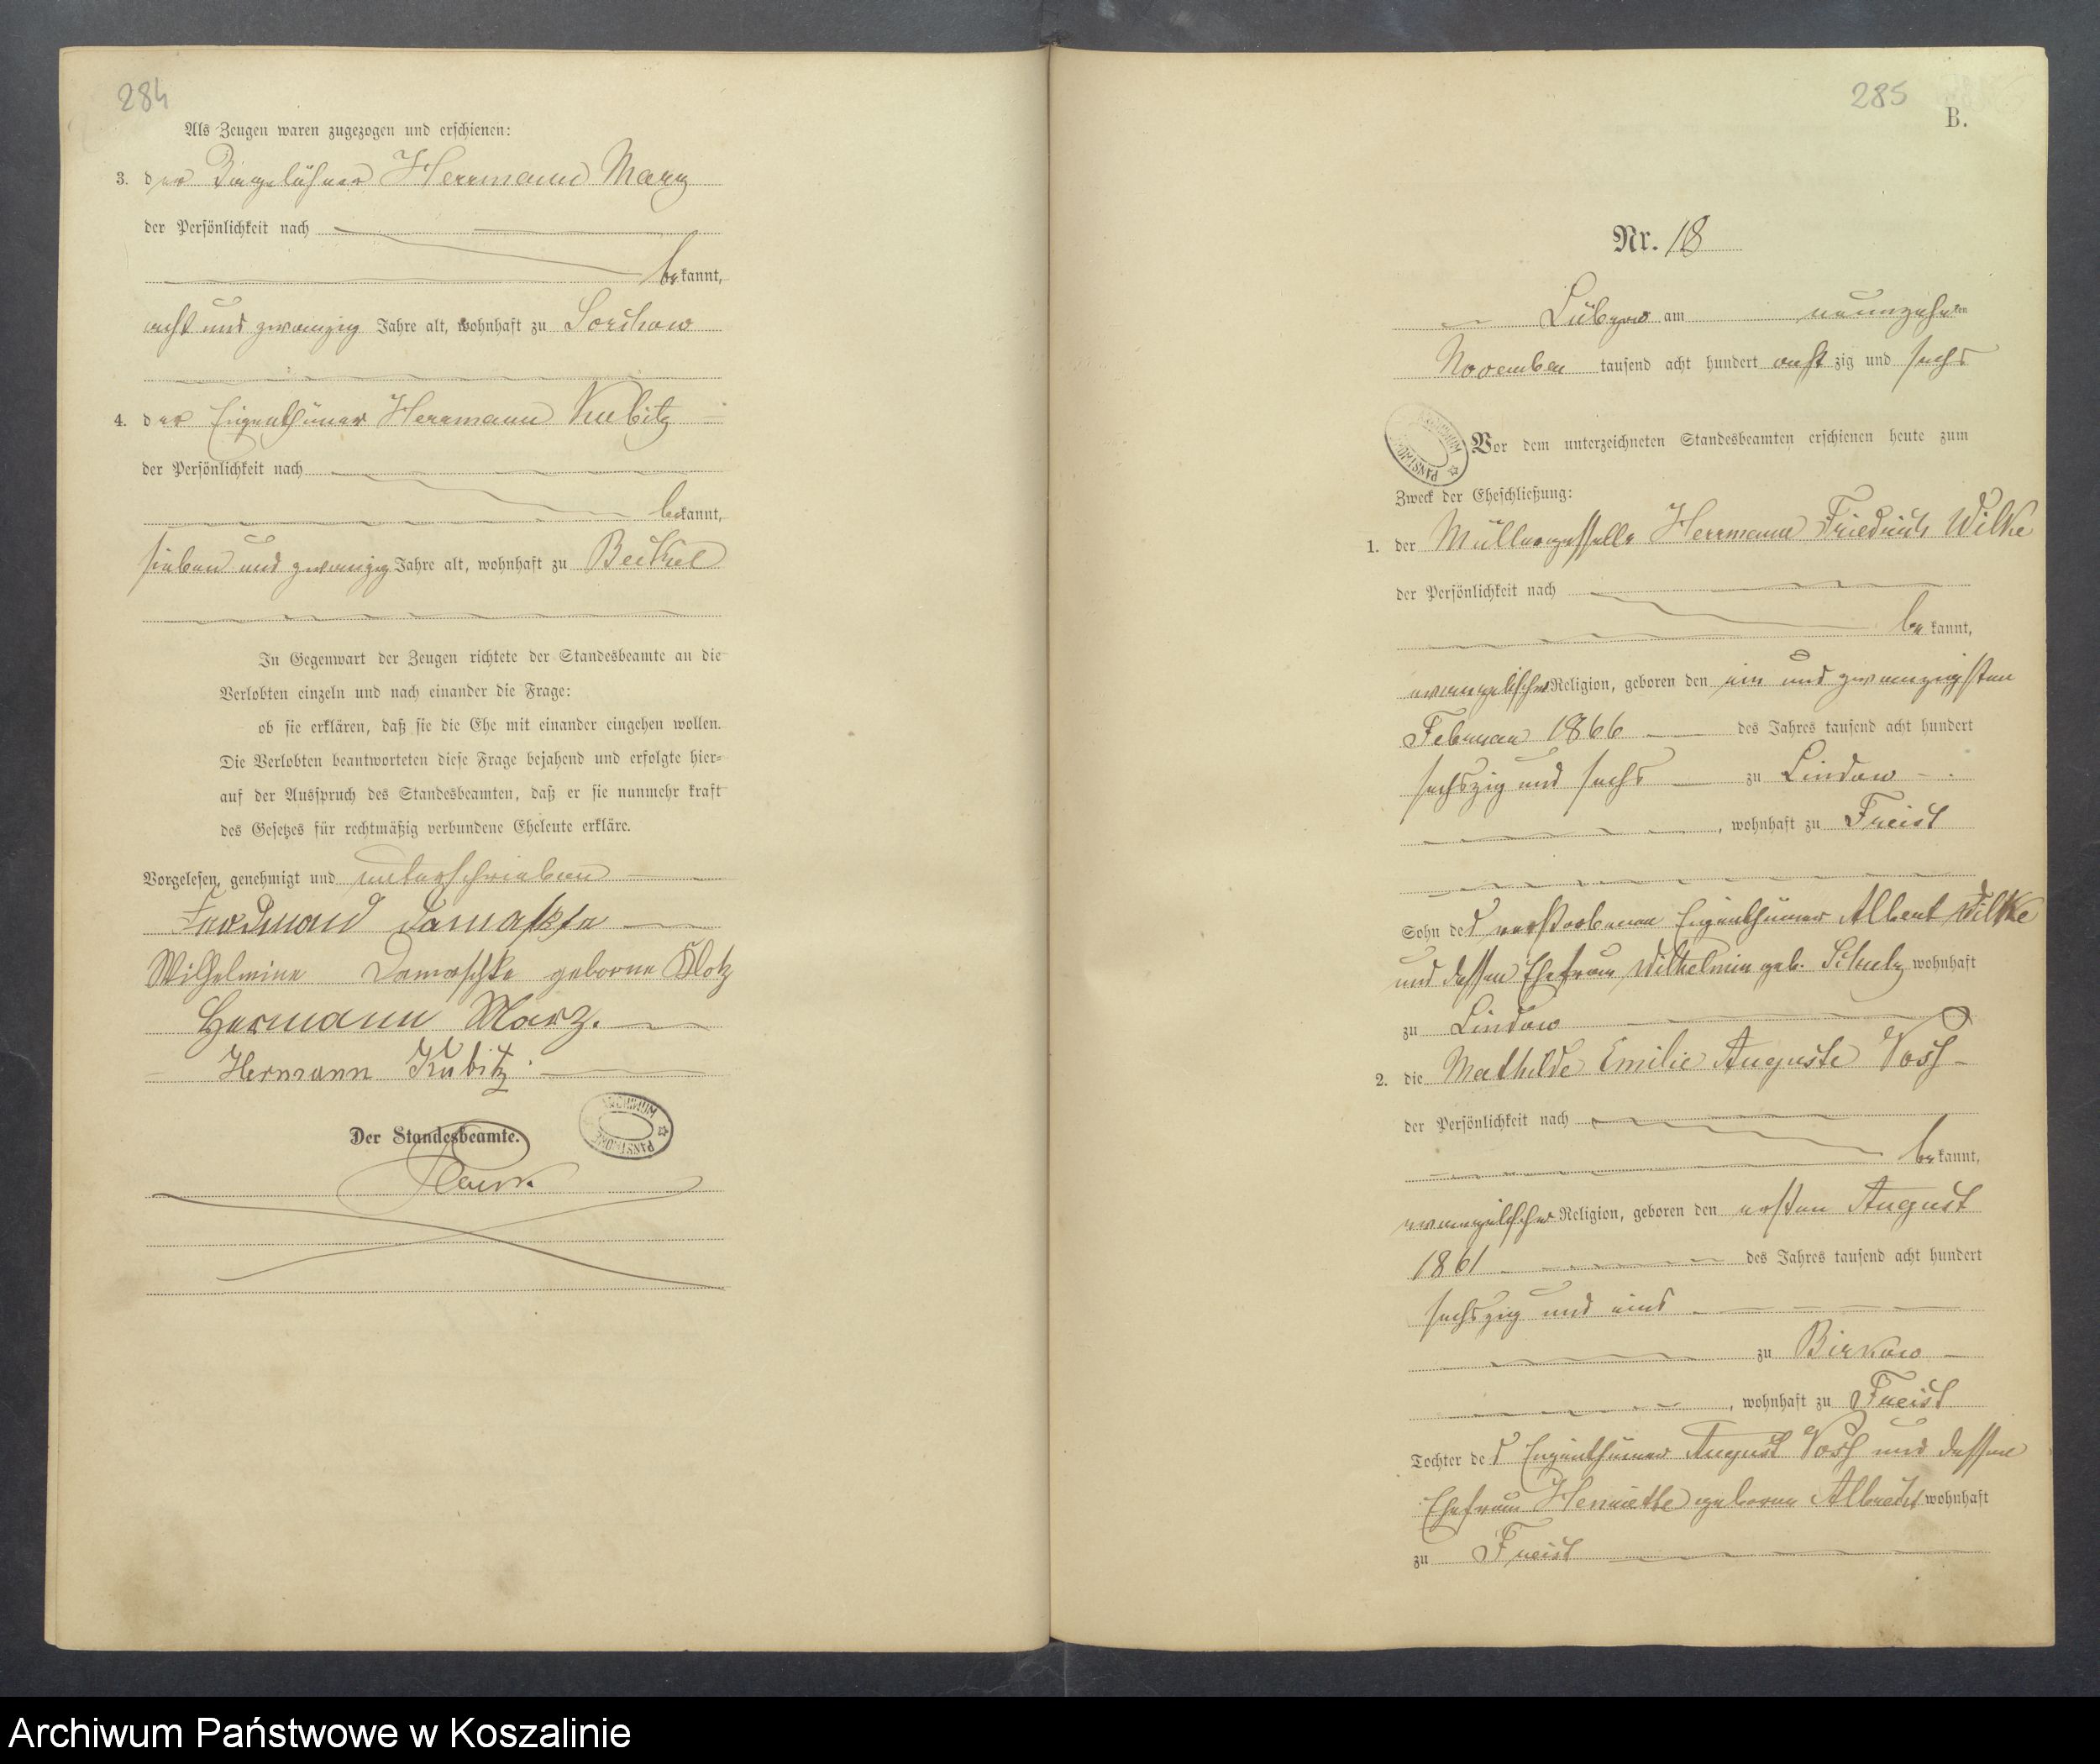 284
Als Zeugen waren zugezogen und erschienen:
3. der Tagelöhner Herrmann Marz
der Persönlichkeit nach
bekannt,
acht und zwanzig Jahre alt, wohnhaft zu Sorchow
4. der Eigenthümer Herrmann Kubitz
der Persönlichkeit nach
bekannt,
sieben und zwanzig Jahre alt, wohnhaft zu Beckel
In Gegenwart der Zeugen richtete der Standesbeamte an die
Verlobten einzeln und nach einander die Frage:
ob sie erklären, daß sie die Ehe mit einander eingehen wollen.
Die Verlobten beantworteten diese Frage bejahend und erfolgte hier-
auf der Ausspruch des Standesbeamten, daß er sie nunmehr kraft
des Gesetzes für rechtmäßig verbundene Eheleute erkläre.
Vorgelesen, genehmigt und unterschrieben
Ferdinand Damaschke
Wilhelmine Damaschke geborne Klotz
Hermann Marz.
Hermann Kubitz
Der Standesbeamte.
ARCHIWUM PAŃSTWOWE
285
B.
Nr. 18
Lübzow am neunzehnten
November tausend acht hundert achtzig und sechs
ARCHIWUM PAŃSTWOWE
Vor dem unterzeichneten Standesbeamten erschienen heute zum
Zweck der Eheschließung:
1. der Müllergeselle Herrmann Friedrich Wilke
der Persönlichkeit nach
bekannt,
evangelischer Religion, geboren den ein und zwanzigsten
Februar 1866 des Jahres tausend acht hundert
sechszig und sechs zu Lindow
, wohnhaft zu Freist
Sohn des verstorbenen Eigenthümer Albert Wilke
und dessen Ehefrau Wilhelmin geb. Schulz wohnhaft
zu Lindow
2. die Mathilde Emilie Auguste Voss
der Persönlichkeit nach
bekannt,
evangelischer Religion, geboren den ersten August
1861 des Jahres tausend acht hundert
sechszig und eins
zu Birkow
, wohnhaft zu Freist
Tochter des Eigenthümer August Voss und dessen
Ehefrau Henriette geborne Albrecht wohnhaft
zu Freist
Archiwum Państwowe w Koszalinie